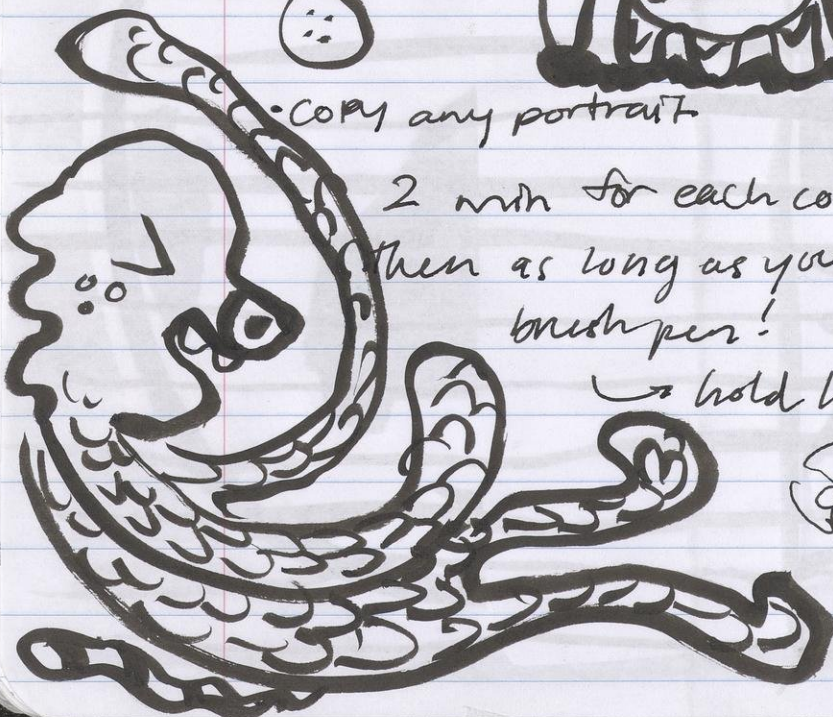 • copy any portrait
2 min for each co
then as long as you
brush pen!
hold